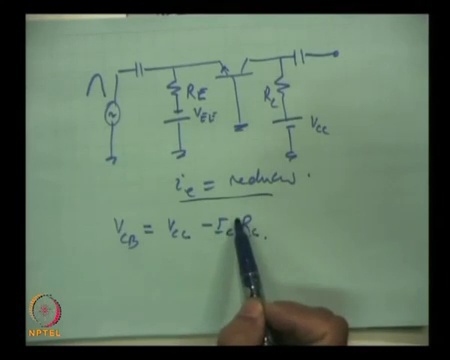 RE
VEE
RC
VCC
ie = reduces.
VCB = VCC - ICRC.
NPTEL